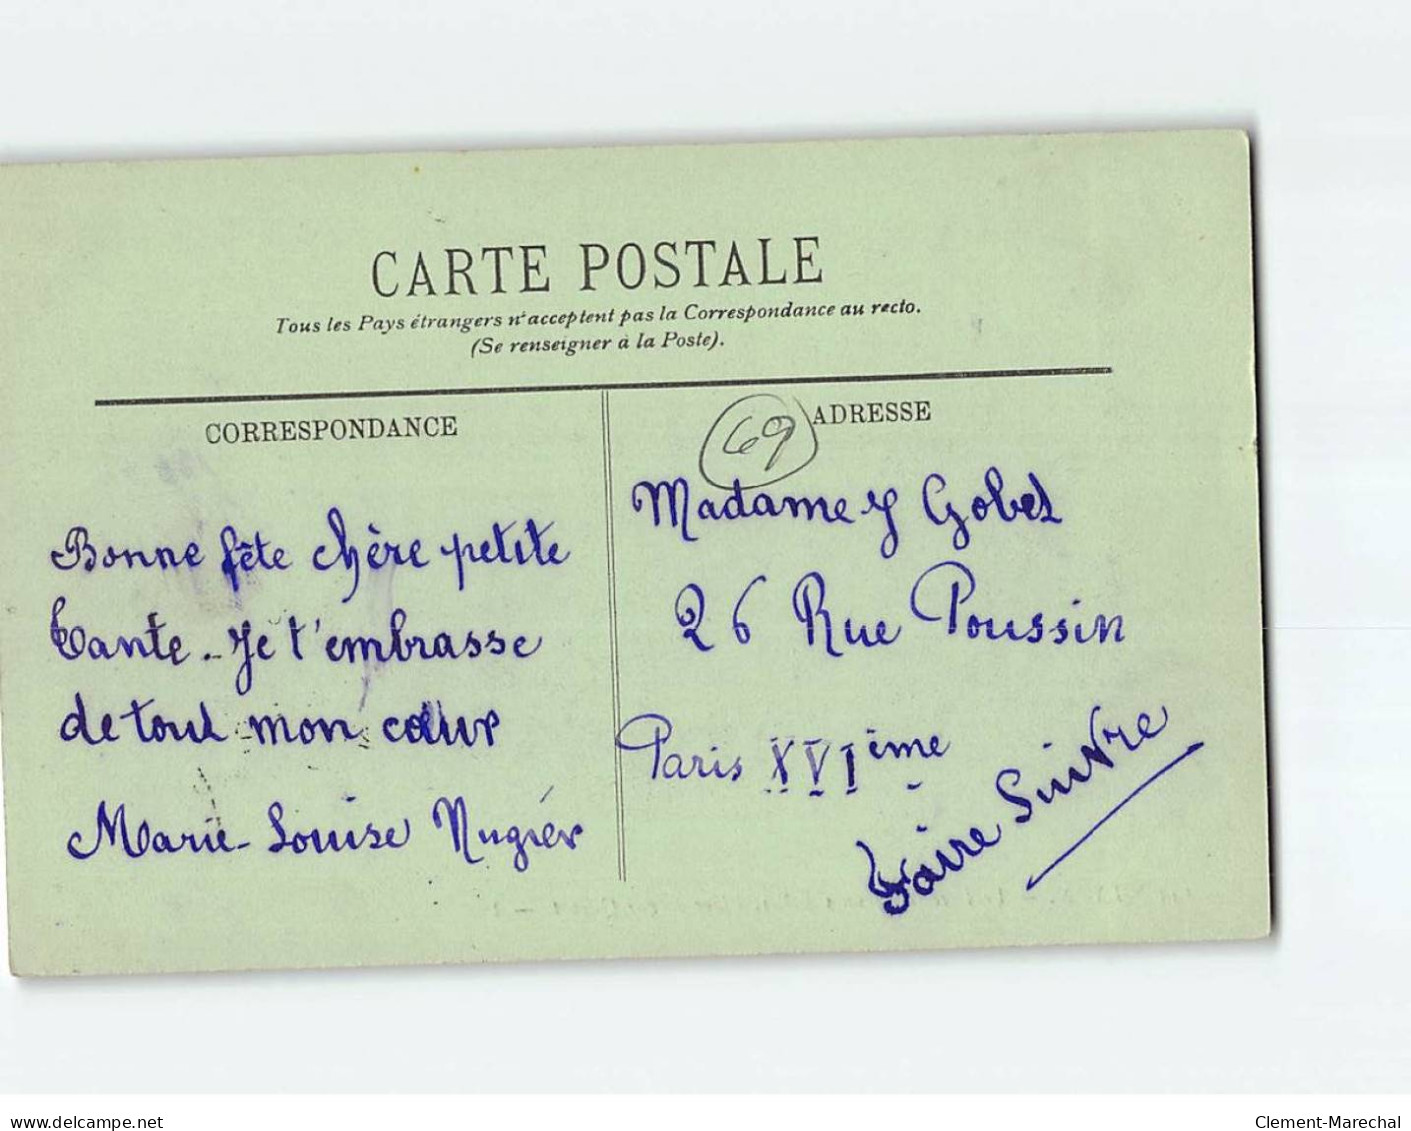 CARTE POSTALE
Tous les Pays étrangers n'acceptent pas la Correspondance au recto.
(Se renseigner à la Poste).
CORRESPONDANCE
Bonne fête chère petite
tante. Je t'embrasse
de tout mon cœur
Marie-Louise Nugier
69
ADRESSE
Madame J Gobet
26 Rue Poussin
Paris XVIème
Faire Suivre
www.delcampe.net
Clement-Marechal